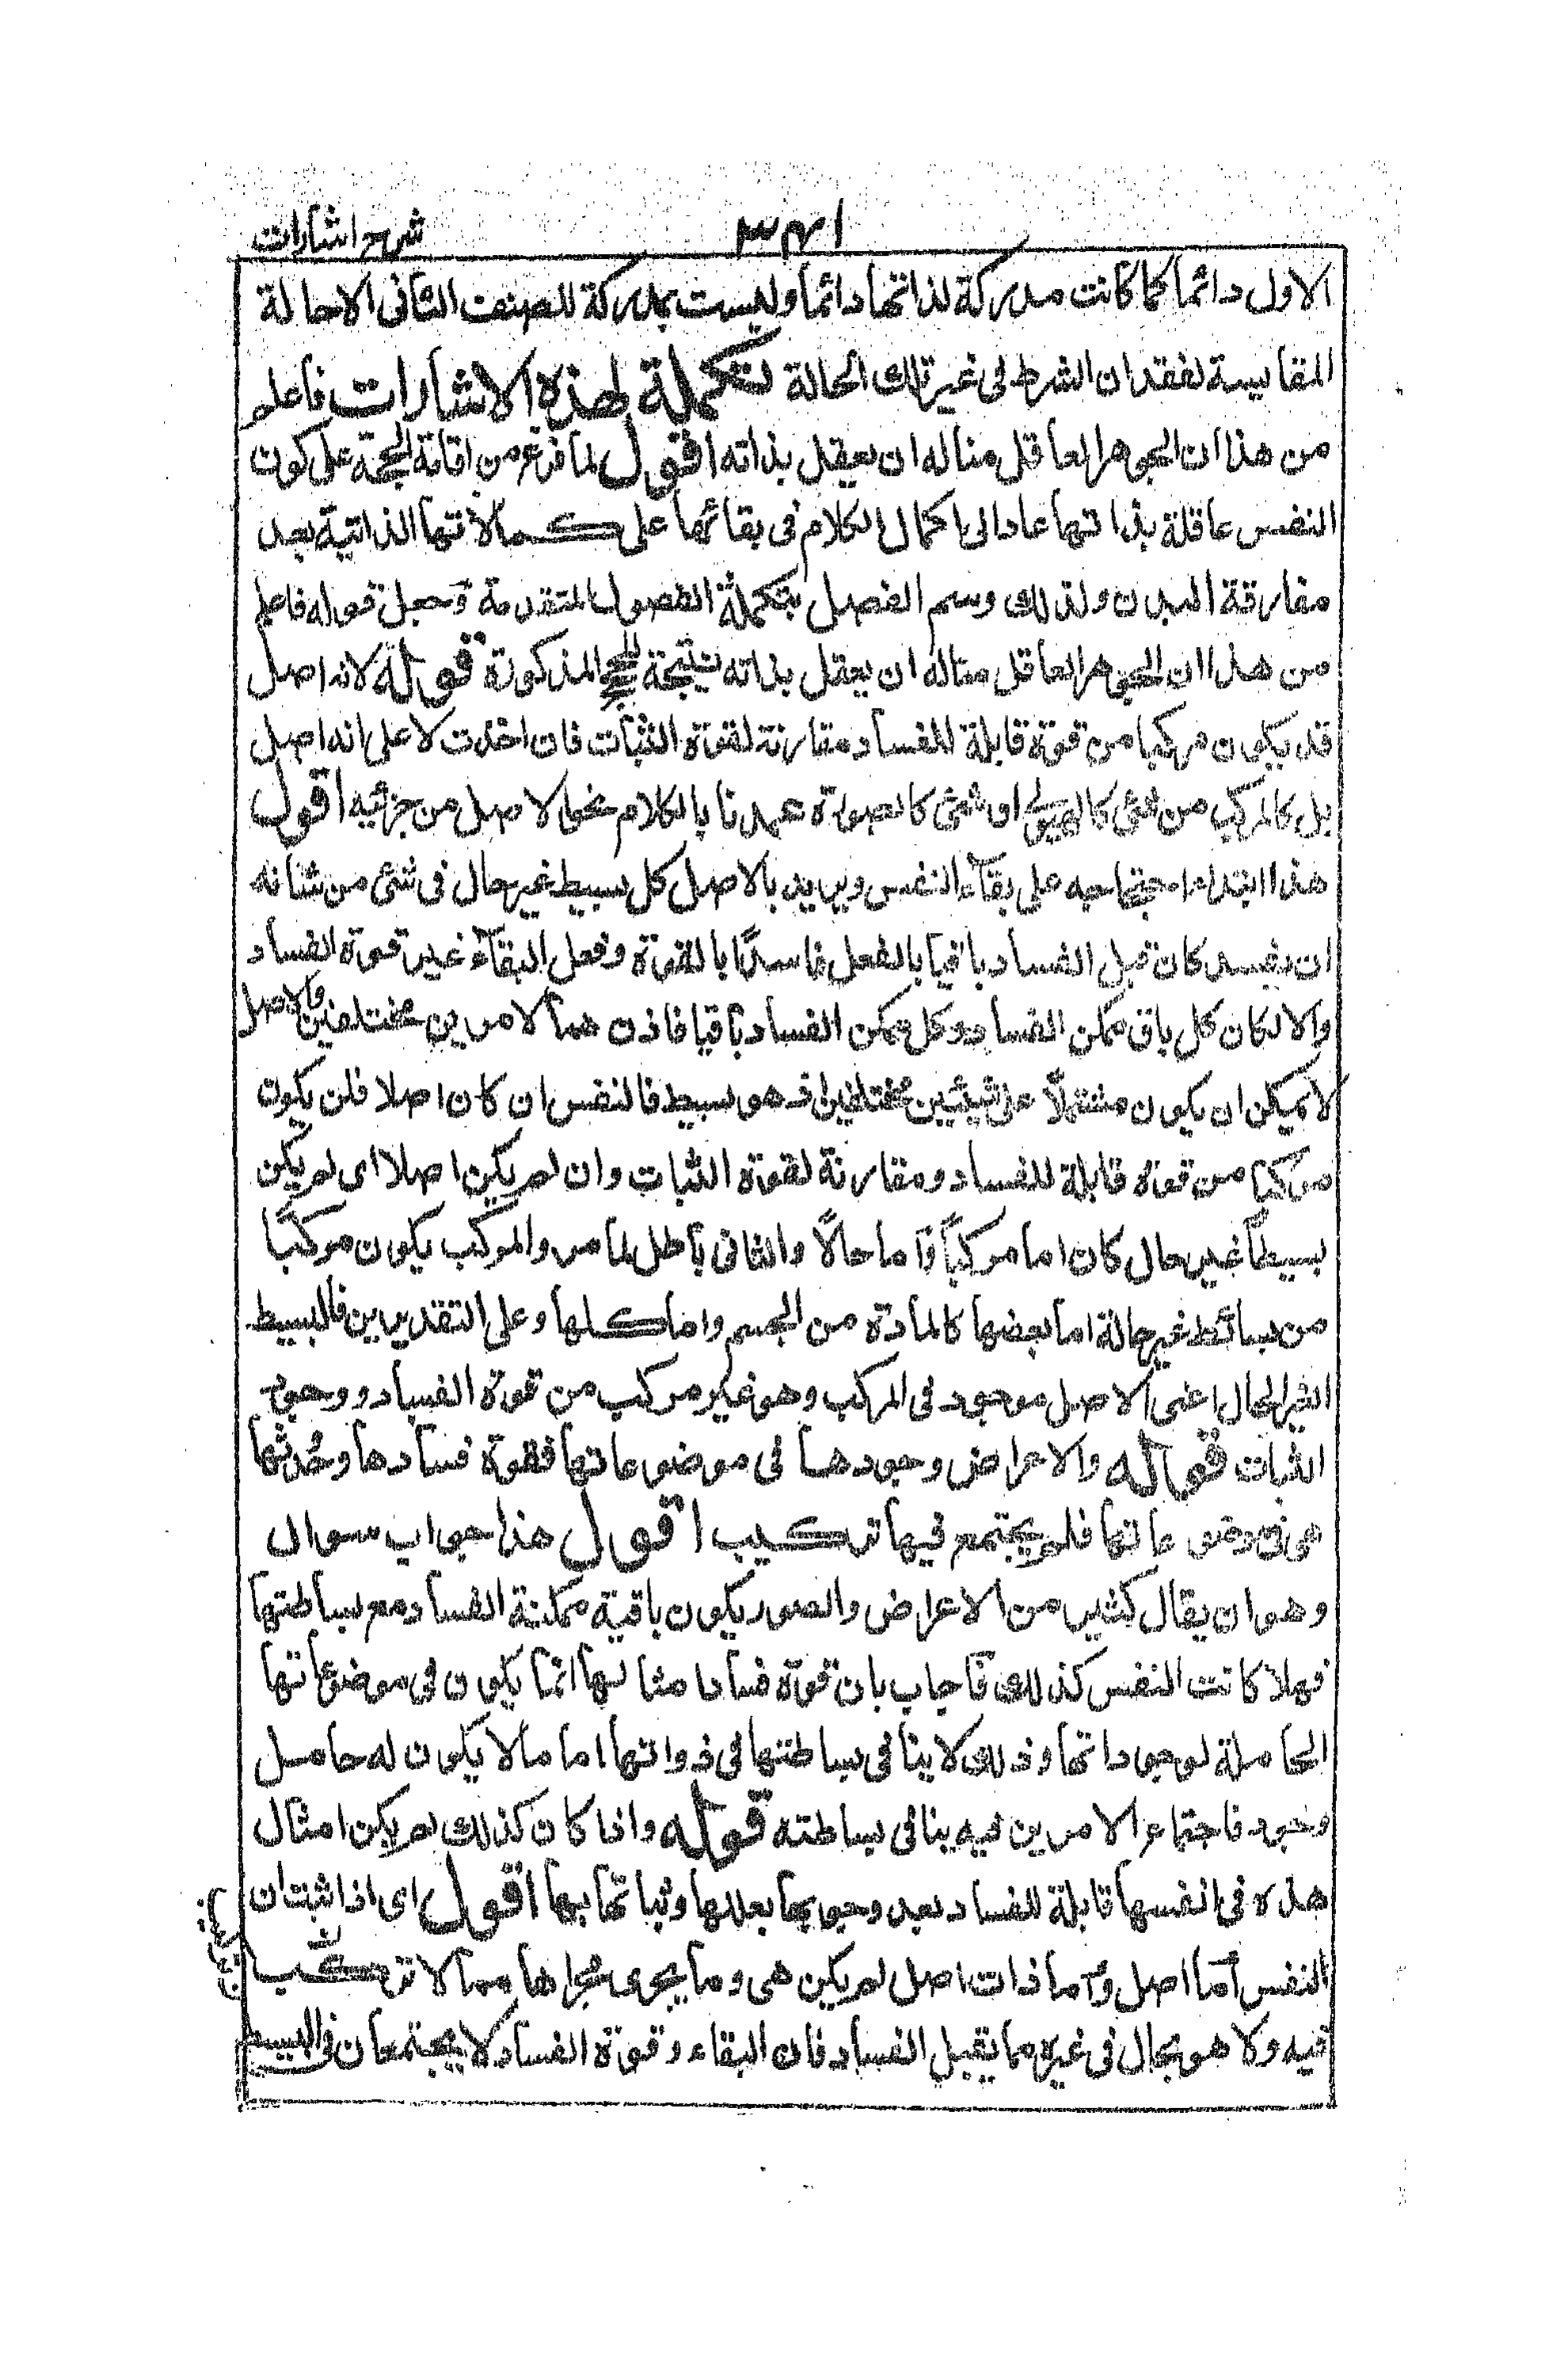 شرح اشارات
٣٤١
الاول دائما كما كانت مدركة لذاتها دائما وليست بمدركة للصنف الثانى الا حالة
المقايسة لفقدان الشرط فى غير تلك الحالة تكملة لهذه الاشارات فاعلم
من هذا ان الجوهر العاقل مناله ان يعقل بذاته اقول لما فرغ من اقامة الحجة على كون
النفس عاقلة بذاتها عاد الى اكمال الكلام فى بقائها على كمالاتها الذاتية بعد
مفارقة البدن ولذلك وسم الفصل بتكملة الفصول المتقدمة وجعل قوله فاعلم
من هذا ان الجوهر العاقل مناله ان يعقل بذاته نتيجة للحجج المذكورة قوله لانه اصل
قد يكون مركبا من قوة قابلة للفساد مقارنة لقوة الثبات فان اخذت لا على انه اصل
بل كالمركب من شئ كالهيولى او شئ كالصورة عمدنا بالكلام نحو الاصل من جزئيه اقول
هذا ابتداء احتجاجه على بقاء النفس ويريد بالاصل كل بسيط غير حال فى شئ من شانه
ان يفسد كان قبل الفساد باقيا بالفعل فاسدًا بالقوة وفعل البقاء غير قوة الفساد
والا لكان كل باق ممكن الفساد وكل ممكن الفساد باقيا فاذن هما لامرين مختلفين والاصل
لا يمكن ان يكون مشتملًا على شيئين مختلفين اذ هو بسيط فالنفس ان كان اصلا فلن يكون
مركبا من قوة قابلة للفساد ومقارنة لقوة الثبات وان لم يكن اصلا اى لم يكن
بسيطا غير حال كان اما مركبًا واما حالًا والثانى باطل لما مر والمركب يكون مركبًا
من بسائط غير حالة اما بعضها كالمادة من الجسم واما كلها وعلى التقديرين فالبسيط
الغير الحال اعنى الاصل موجود فى المركب وهو غير مركب من قوة الفساد ووجود
الثبات قوله والاعراض وجودها فى موضوعاتها فقوة فسادها وحدثها
هى فى موضوعاتها فلم يجتمع فيها تركيب اقول هذا جواب سوال
وهو ان يقال كثير من الاعراض والصور يكون باقية ممكنة الفساد مع بساطتها
فهلا كانت النفس كذلك فاجاب بان قوة فساد امثالها انما يكون فى موضوعاتها
الحاملة لوجوداتها وذلك لا ينافى بساطتها فى ذواتها اما ما لا يكون له حامل
وجود فاجتماع الامرين فيه ينافى بساطته قوله واذا كان كذلك لم يكن امثال
هذه فى انفسها قابلة للفساد بعد وجوبها بعللها وثباتها بها اقول اى اذا ثبت ان
النفس اما اصل واما ذات اصل لم يكن هى وما يجرى مجراها مما لا تركيب
فيه ولا هو بحال فى غيره مما يقبل الفساد فان البقاء وقوة الفساد لا يجتمعان فى البسيط